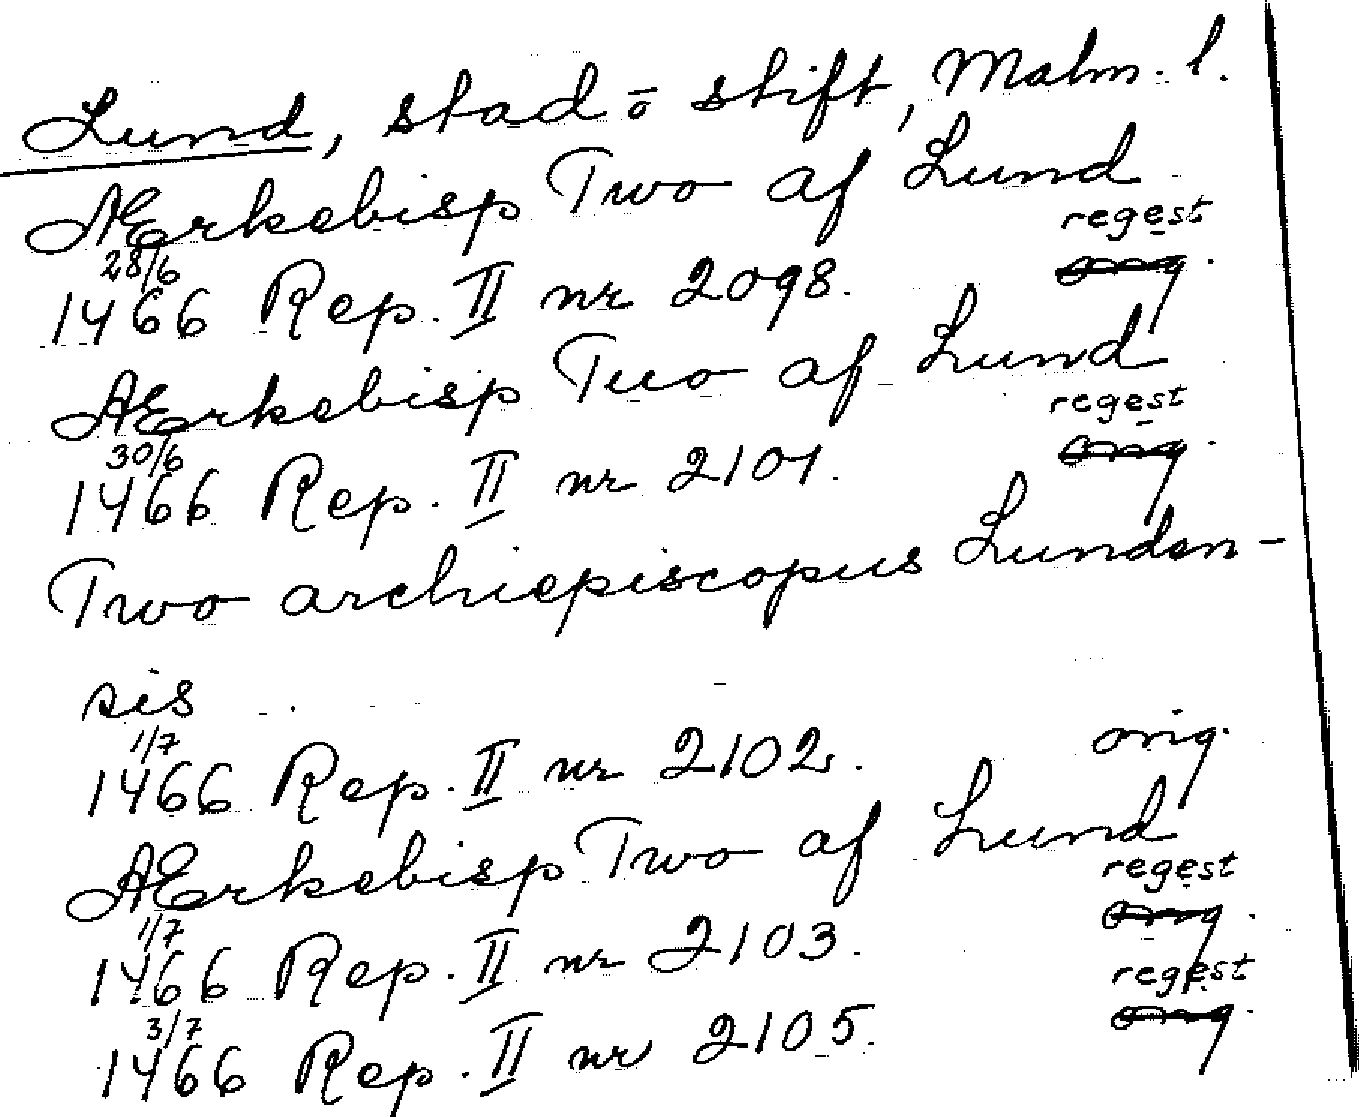 Lund, stad o stift, Malm. l.
Ærkebisp Two af Lund
28/6 regest
1466 Rep. II nr 2098. orig.
Ærkebisp Two af Lund
30/6 regest
1466 Rep. II nr 2101. orig.
Two archiepiscopus Lunden-
sis
1/7
1466 Rep. II nr 2102. orig.
Ærkebisp Two af Lund
1/7 regest
1466 Rep. II nr 2103. orig.
3/7 regest
1466 Rep. II nr 2105. orig.